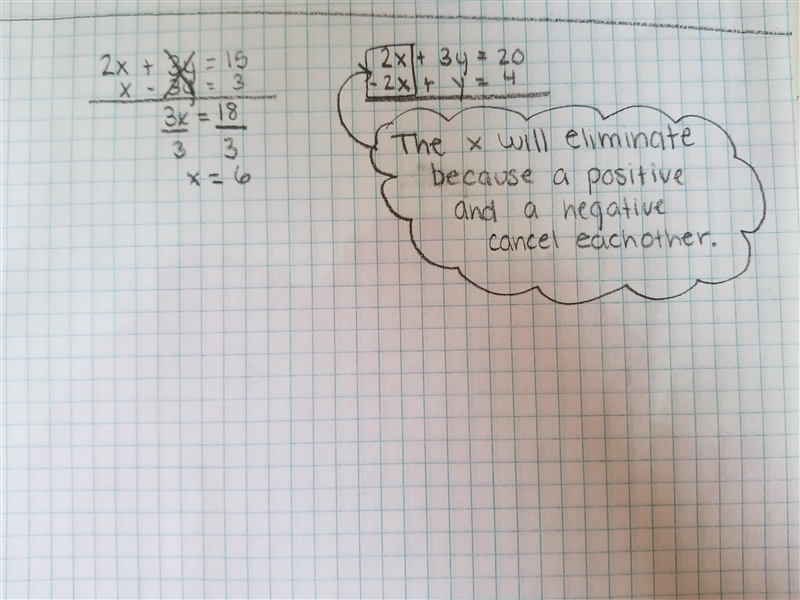 2x + 3y = 15
x - 3y = 3
3x = 18
3 3
x = 6
2x + 3y = 20
-2x + y = 4
The x will eliminate
because a positive
and a negative
cancel eachother.